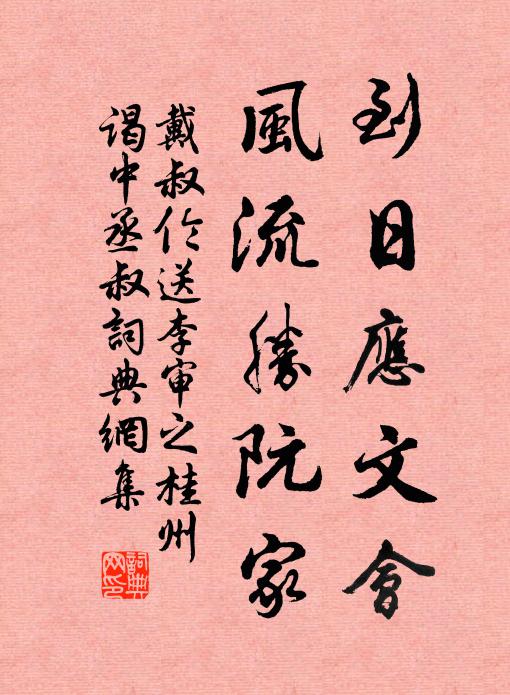 到日應文會
風流勝阮家
戴叔伦送李审之桂州
谒中丞叔詞典網集
詞典网印